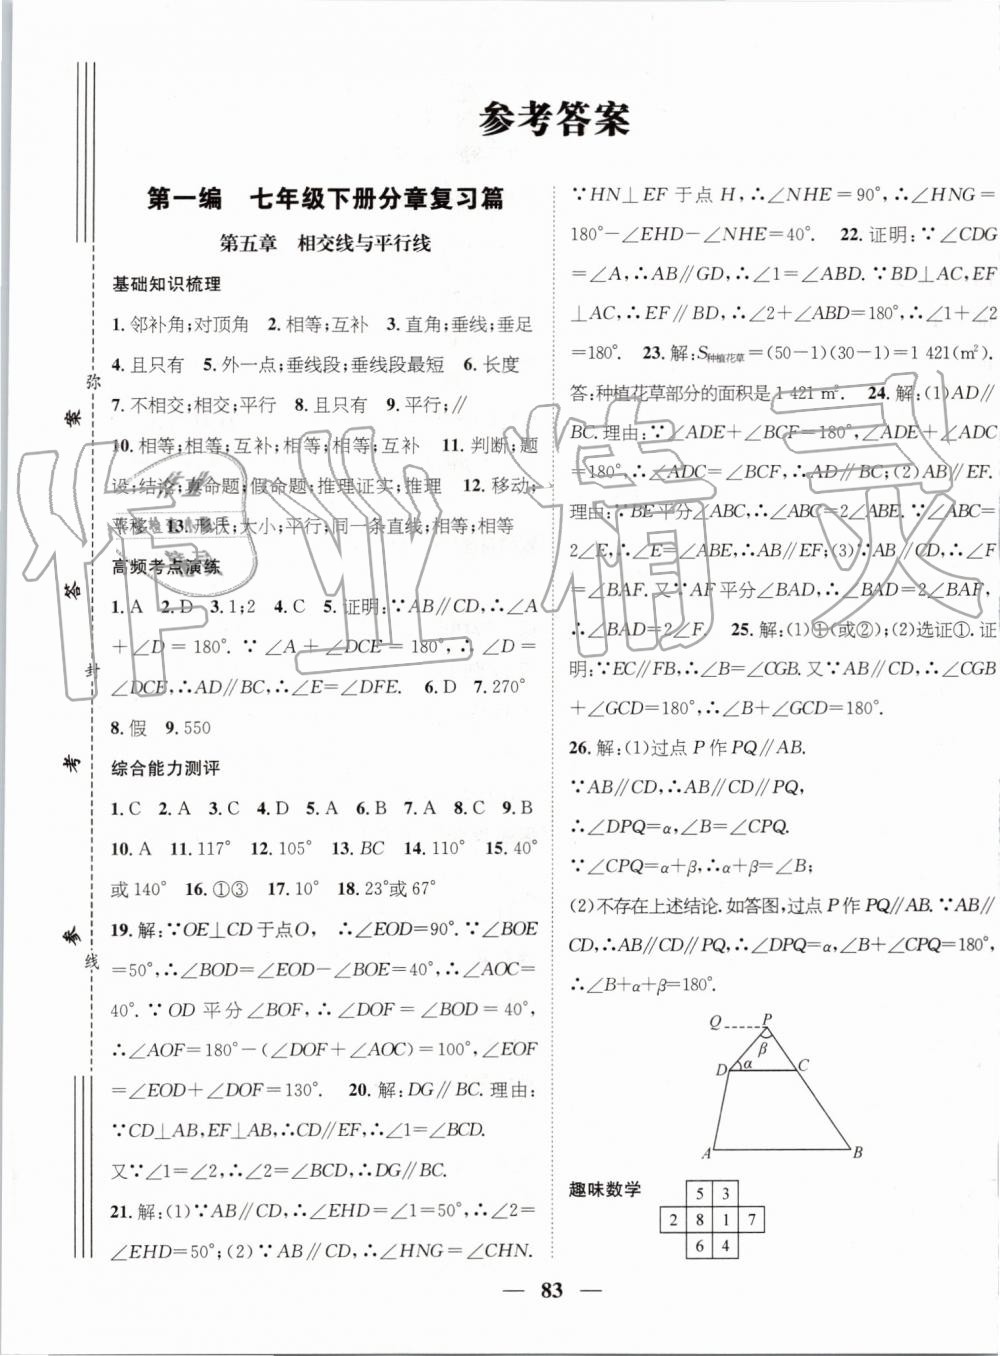 参考答案
第一编 七年级下册分章复习篇
第五章 相交线与平行线
基础知识梳理
1.邻补角;对顶角 2.相等;互补 3.直角;垂线;垂足
4.且只有 5.外一点;垂线段;垂线段最短 6.长度
7.不相交;相交;平行 8.且只有 9.平行;∥
10.相等;相等;互补;相等;相等;互补 11.判断;题
设;结论;真命题;假命题;推理证实;推理 12.移动;
平移 13.形状;大小;平行;同一条直线;相等;相等
高频考点演练
1.A 2.D 3.1;2 4.C 5.证明:∵AB∥CD,∴∠A
+∠D=180°.∵∠A+∠DCE=180°,∴∠D=
∠DCE,∴AD∥BC,∴∠E=∠DFE. 6.D 7.270°
8.假 9.550
综合能力测评
1.C 2.A 3.C 4.D 5.A 6.B 7.A 8.C 9.B
10.A 11.117° 12.105° 13.BC 14.110° 15.40°
或140° 16.①③ 17.10° 18.23°或67°
19.解:∵OE⊥CD于点O, ∴∠EOD=90°.∵∠BOE
=50°,∴∠BOD=∠EOD-∠BOE=40°,∴∠AOC=
40°.∵OD平分∠BOF,∴∠DOF=∠BOD=40°,
∴∠AOF=180°-(∠DOF+∠AOC)=100°,∠EOF
=∠EOD+∠DOF=130°. 20.解:DG∥BC.理由:
∵CD⊥AB,EF⊥AB,∴CD∥EF,∴∠1=∠BCD.
又∵∠1=∠2,∴∠2=∠BCD,∴DG∥BC.
21.解:(1)∵AB∥CD,∴∠EHD=∠1=50°,∴∠2=
∠EHD=50°;(2)∵AB∥CD,∴∠KEG=∠CHN.
∵HN⊥EF于点H,∴∠NHE=90°,∴∠HNG=
180°-∠EHD-∠NHE=40°. 22.证明:∵∠CDG
=∠A,∴AB∥GD,∴∠1=∠ABD.∵BD⊥AC,EF
⊥AC,∴EF∥BD,∴∠2+∠ABD=180°,∴∠1+∠2
=180°. 23.解:S种植花草=(50-1)(30-1)=1 421(m²).
答:种植花草部分的面积是1 421 m². 24.解:(1)AD∥
BC.理由:∵∠ADE+∠BCF=180°,∠ADE+∠ADC
=180°,∴∠ADC=∠BCF,∴AD∥BC;(2)AB∥EF.
理由:∵BE平分∠ABC,∴∠ABC=2∠ABE.∵∠ABC=
2∠E,∴∠E=∠ABE,∴AB∥EF;(3)∵AB∥EF,∴∠F
=∠BAF.又∵AF平分∠BAD,∴∠BAD=2∠BAF,
∴∠BAD=2∠F. 25.解:(1)①(或②);(2)选证①.证
明:∵EC∥FB,∴∠B=∠CGB.又∵AB∥CD,∴∠CGB
+∠GCD=180°,∴∠B+∠GCD=180°.
26.解:(1)过点P作PQ∥AB.
∵AB∥CD,∴AB∥CD∥PQ,
∴∠DPQ=α,∠B=∠CPQ.
∵∠CPQ=α+β,∴α+β=∠B;
(2)不存在上述结论.如答图,过点P作PQ∥AB.∵AB∥
CD,∴AB∥CD∥PQ,∴∠DPQ=α,∠B+∠CPQ=180°,
∴∠B+α+β=180°.
Q P
β
D α C
A B
趣味数学
5 3
2 8 1 7
6 4
83
弥
封
线
参考答案
作业精灵